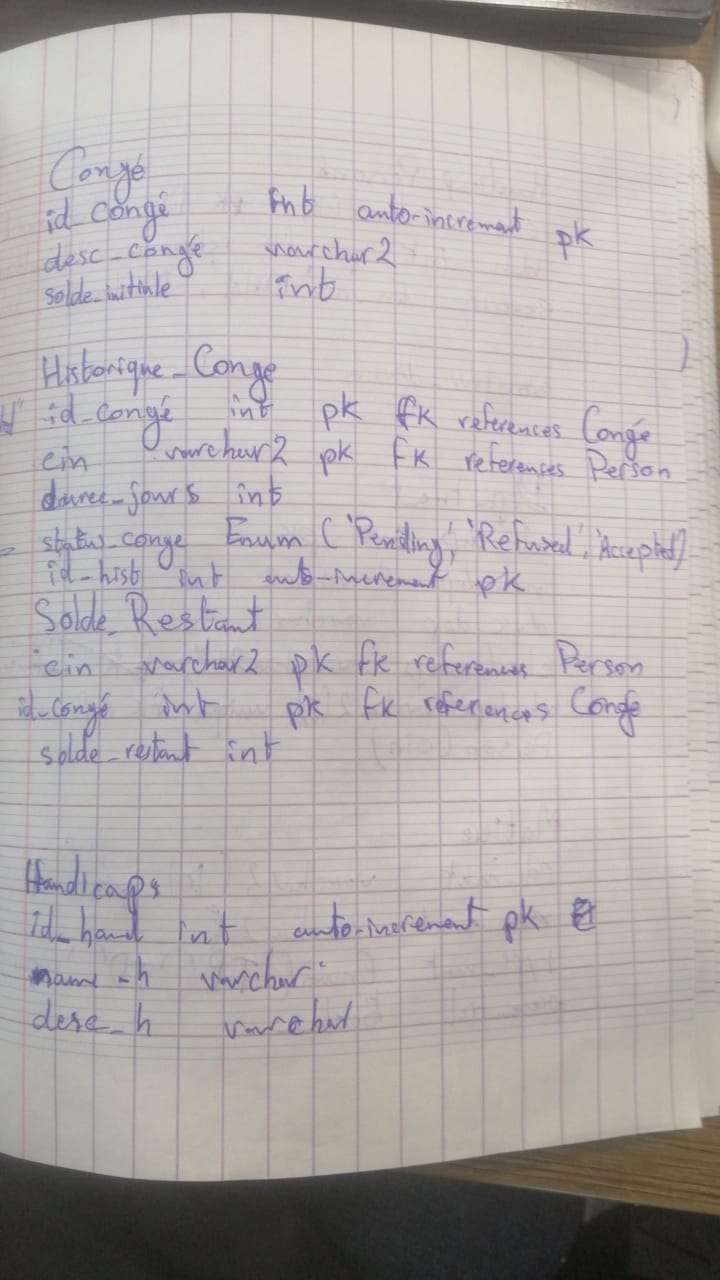 Congé
id_congé int auto-increment pk
desc_congé varchar2
solde_initiale int
Historique_Conge
id_congé int pk fk references Congé
cin varchar2 pk fk references Person
duree_jours int
status_conge Enum ('Pending', 'Refused', 'Accepted')
id_hist int auto-increment pk
Solde_Restant
cin varchar2 pk fk references Person
id_congé int pk fk references Congé
solde_restant int
Handicaps
id_hand int auto-increment pk
name_h varchar
desc_h varchar